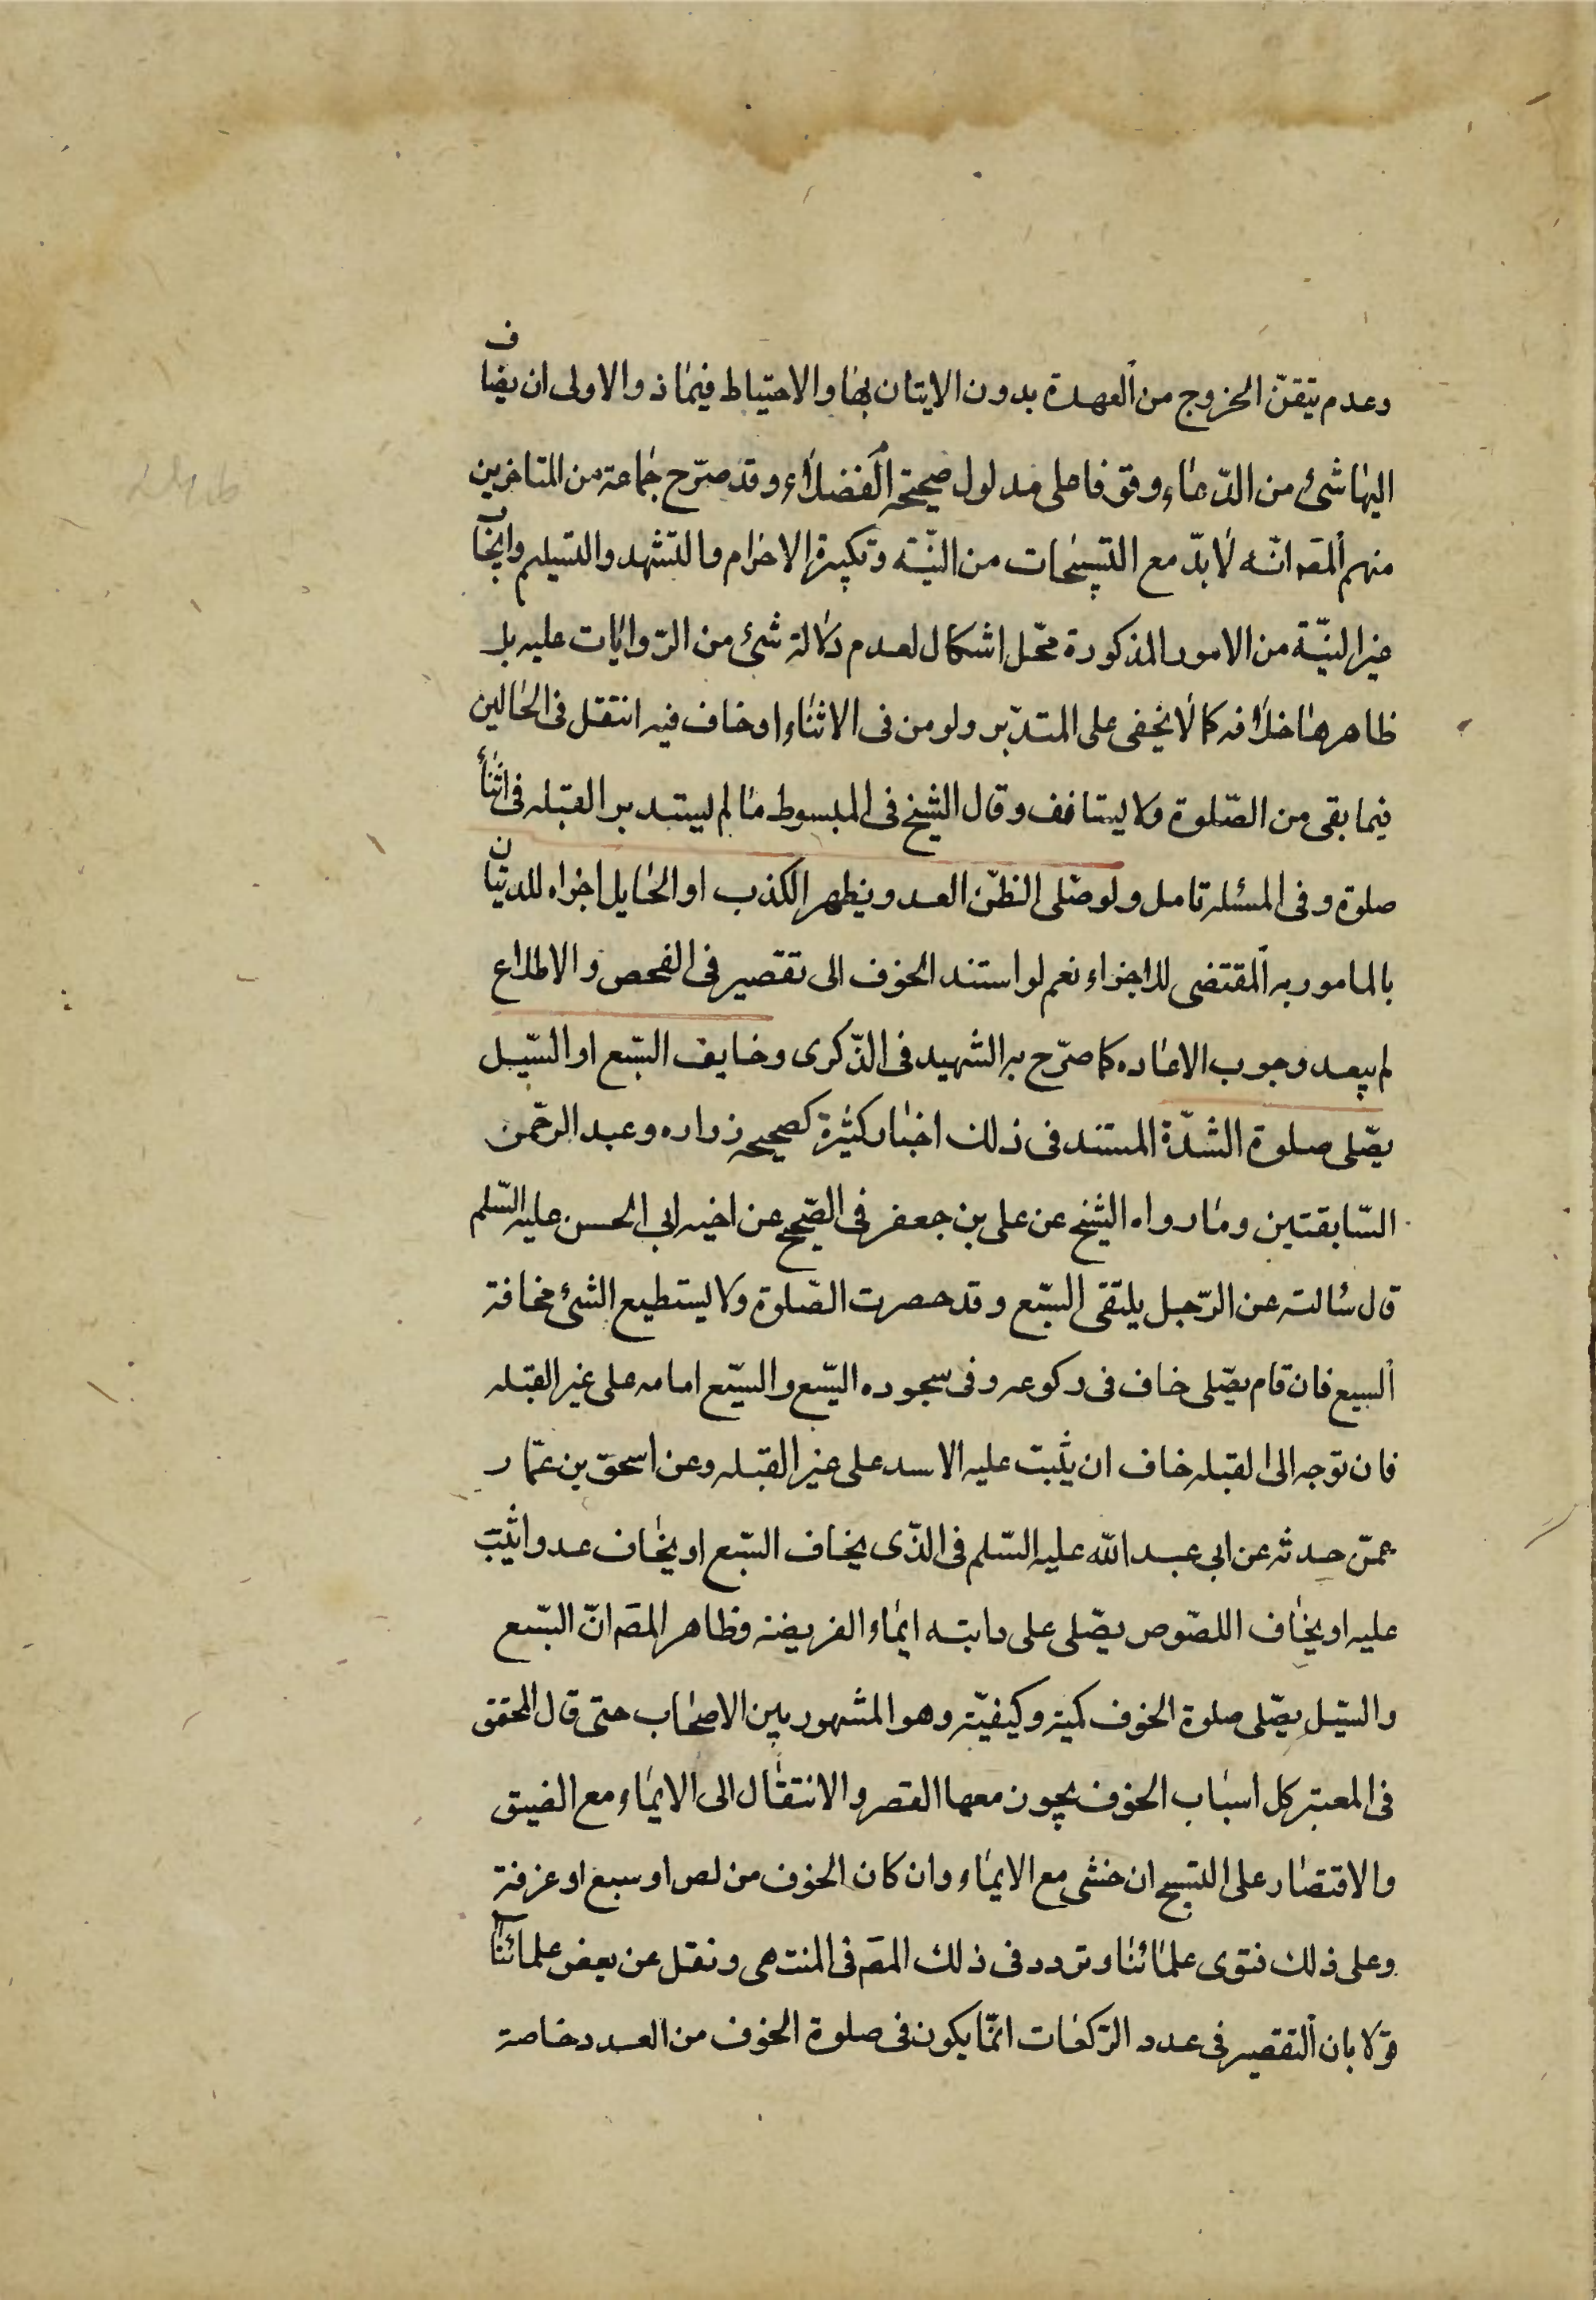 وعدم تيقّن الخروج من العهدة بدون الايتان بها والاحتياط فيما ذ والاولى ان يضاف
اليها شئ من الدّعاء وقوفا على مدلول صحيحة الفضلاء وقد صرّح جماعة من المتاخرين
منهم المصَ انّه لا بدّ مع التسبيحات من النيّة وتكبيرة الاحرام والتشهد والتسليم وايجاب
غير النيّة من الامور المذكورة محّل اشكال لعدم دلالة شئ من الرّوايات عليه بل
ظاهرها خلافه كما لا يخفى على المتدّبر ولو من فى الاثناء او خاف فيه انتقل فى الحالين
فيما بقى من الصّلوة ولا يستانف وقال الشيخ فى المبسوط ما لم يستدبر القبله فى اثناء
صلوة وفى المسئله تامل ولو صّلى لظّن العدو ينظهر الكذب او الحايل اجزاه للدتيان
بالمامور به المقتضى للاجزاء نعم لو استند الخوف الى تقصير فى الفحص والاطلاع
لم يبعد وجوب الاعاده كما صرّح به الشهيد فى الذّكرى وخايف السّبع او السّيل
يصّلى صلوة الشدّة المستند فى ذلك اخبار كثيرة كصحيحه زراره وعبد الرحّمن
السّابقتين وما رواه الشيخ عن على بن جعفر فى الصّحيح عن اخيه ابى الحسن عليه السّلم
قال سالته عن الرّجل يلتقى السّبع وقد حصرت الصّلوة ولا يستطيع الشئ مخافة
السبع فان قام يصّلى خاف فى ركوعه وفى سجوده السّبع والسّبع امامه على غير القبله
فان توجه الى القبله خاف ان يثبت عليه الاسد على غير القبله وعن اسحق بن عمّار
عمّن حدثه عن ابى عبد الله عليه السّلم فى الذّى يخاف السّبع او يخاف عدوا يثبت
عليه او يخاف اللصّوص يصّلى على دابته ايماء الفريضه وظاهر المصَ انّ السّبع
والسّيل يصّلى صلوة الخوف كمية وكيفيّة وهو المشهور بين الاصحاب حتى قال المحقق
فى المعتبر كل اسباب الخوف يجوز معها القصر والانتقال الى الايماء مع الضيق
والاقتصار على التسبيح ان خشى مع الايماء وان كان الخوف من لص او سبع او غرق
وعلى ذلك فتوى علمائنا وتردد فى ذلك المصَ فى المنتهى ونقل عن بعض علمائنا
قولا بان التقصير فى عدد الركعات انمّا يكون فى صلوة الخوف من العدد خاصة